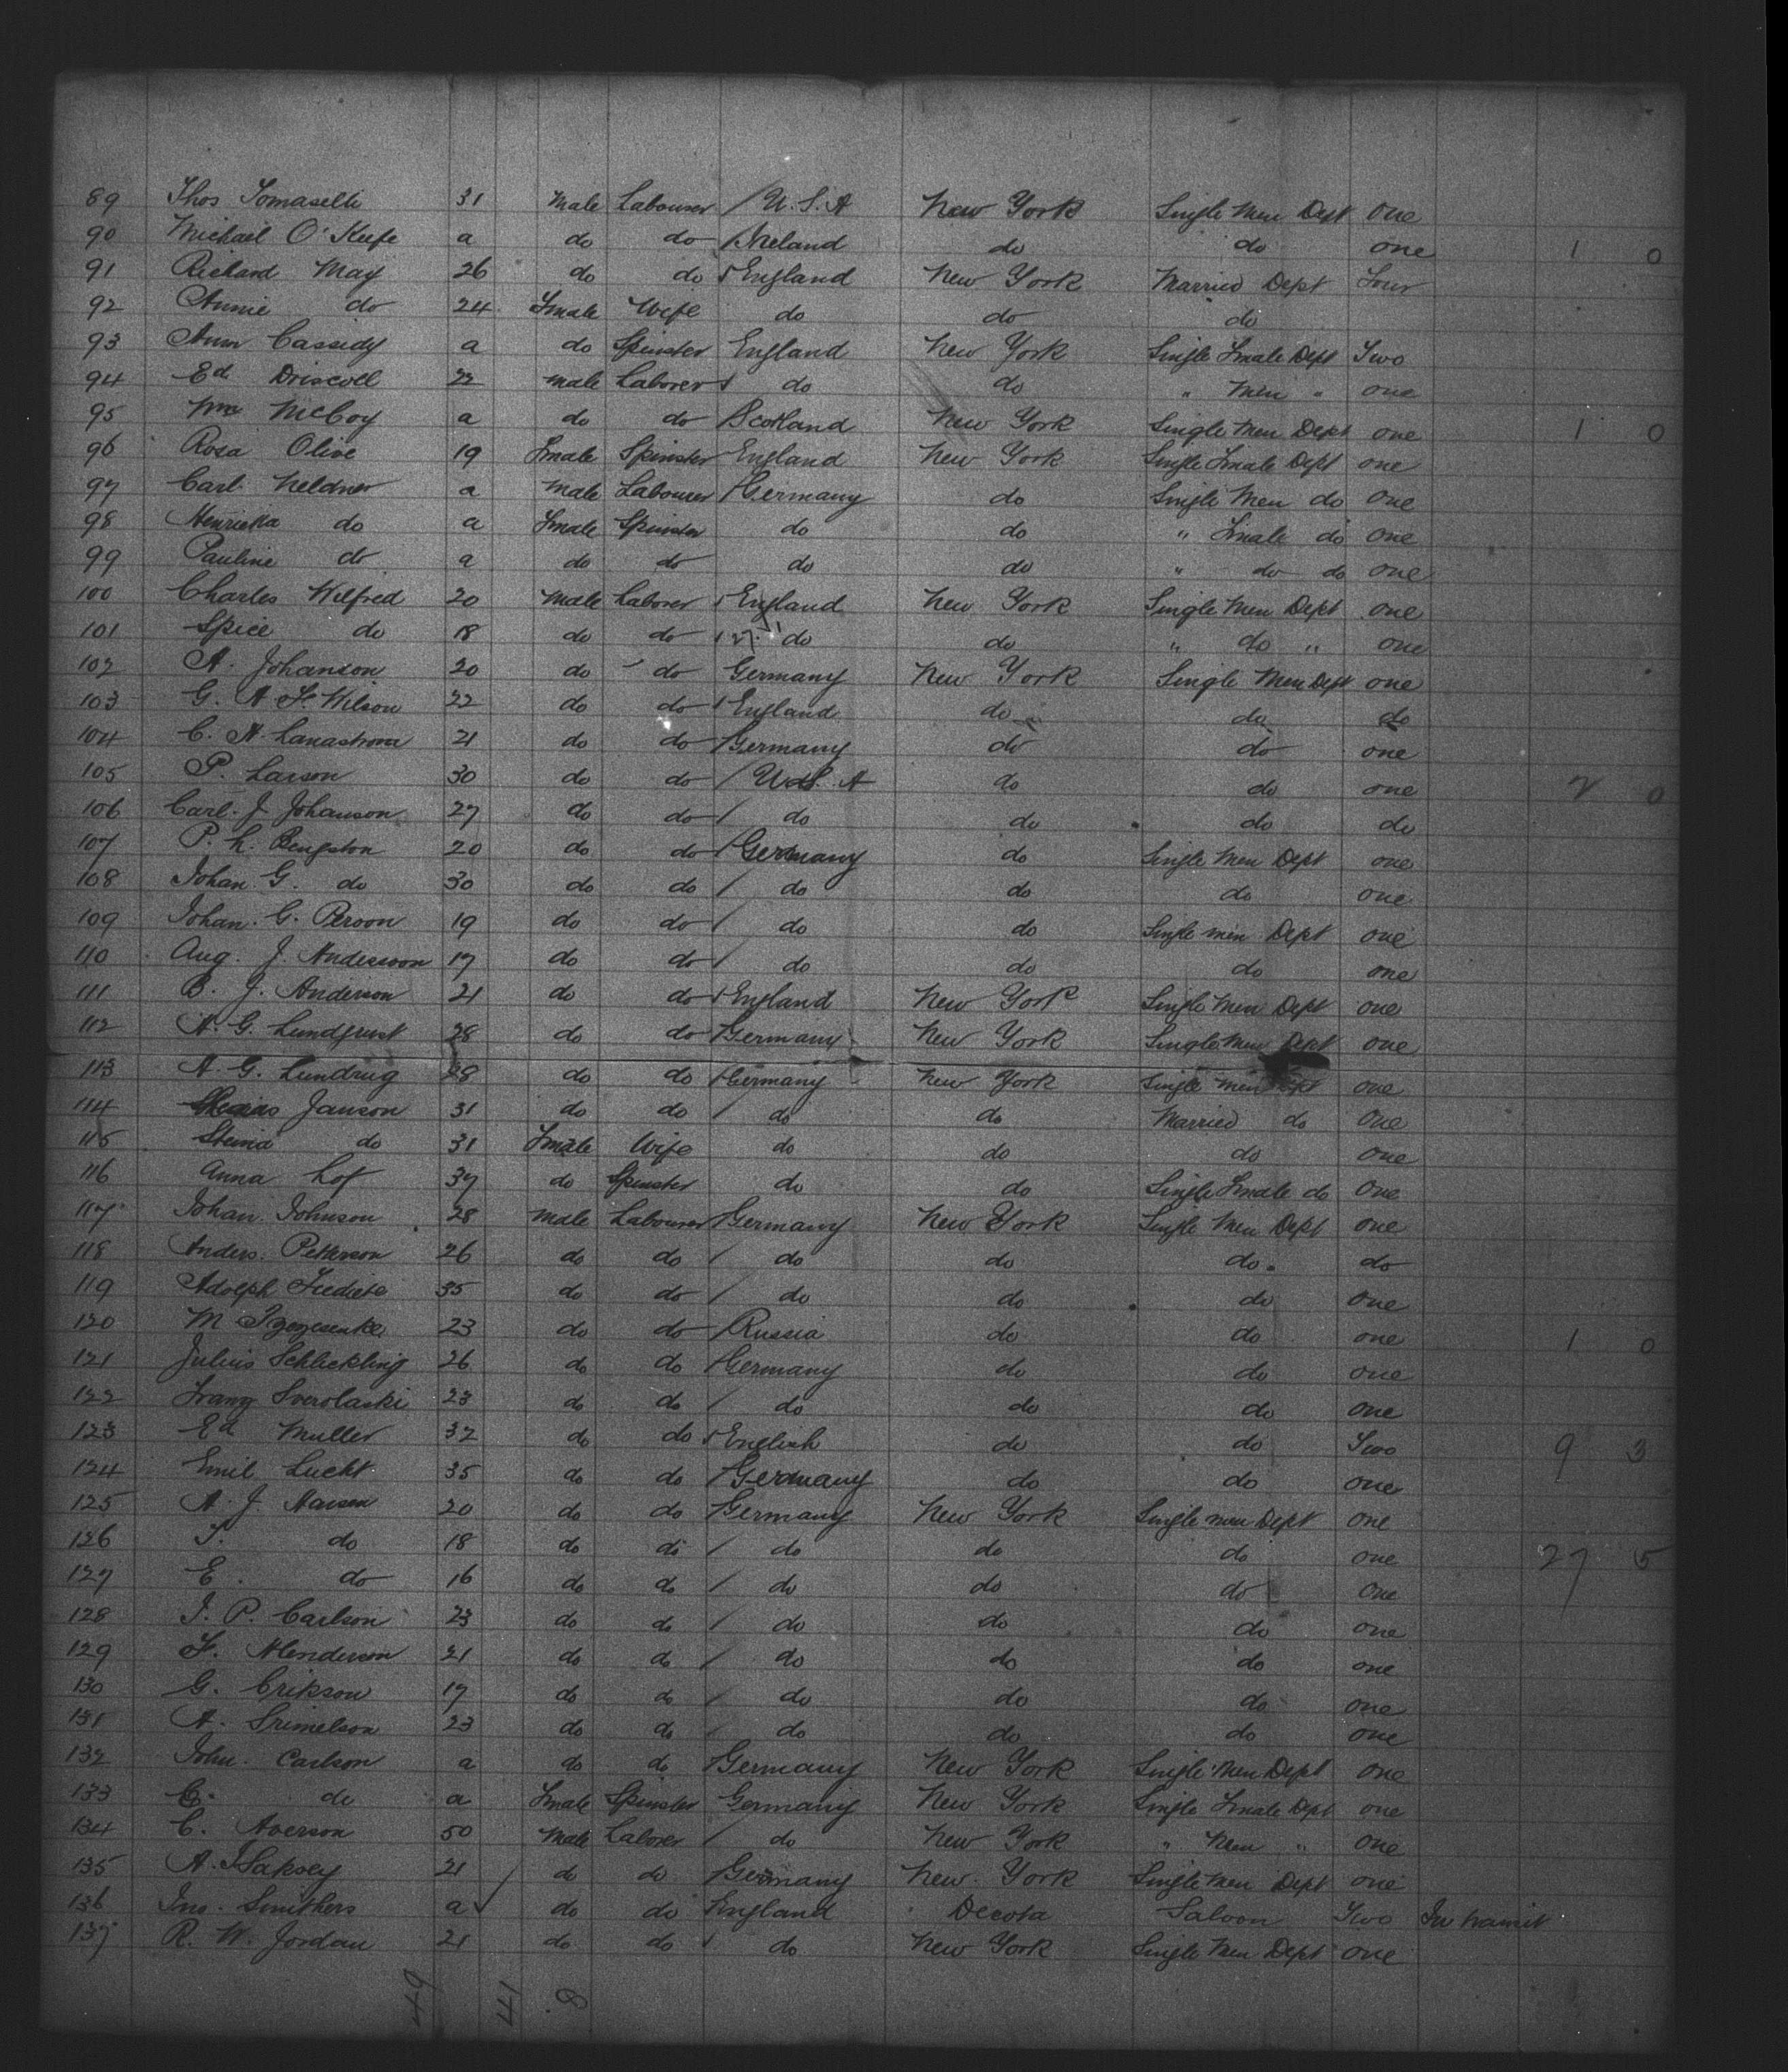 89 Thos Tomaselli 31 Male Labourer / U.S.A New York Single Men Dept One
90 Michael O'Keefe a do do / Ireland do do one 1 0
91 Richard May 26 do do England New York Married Dept Four
92 Annie do 24 Fmale Wife do do do
93 Ann Cassidy a do Spinster England New York Single Fmale Dept Two
94 Ed Driscoll 22 Male Laborer do do " Men " one
95 Wm McCoy a do do Scotland New York Single Men Dept one 1 0
96 Rosa Olive 19 Fmale Spinster England New York Single Fmale Dept one
97 Carl Neldner a Male Labourer / Germany do Single Men do One
98 Henrieka do a Fmale Spinster do do " Fmale do one
99 Pauline do a do do do do " do do one
100 Charles Wilfred 20 Male Laborer England New York Single Men Dept one
101 Spice do 18 do do do do " do " one
102 A. Johanson 20 do do Germany New York Single Men Dept one
103 G. A. F. Wilson 22 do do England do do do
104 C. A. 21 do do / Germany do do one
105 P. Larson 30 do do / U.S. A do do one 2 0
106 Carl. J Johanson 27 do do / do do do do
107 P. L. Bengston 20 do do / Germany do Single Men Dept one
108 Johan G. do 30 do do / do do do one
109 Johan. G. Peroon 19 do do / do do Single men Dept one
110 Aug. J. Anderson 17 do do / do do do one
111 B. J. Anderson 21 do do England New York Single Men Dept one
112 A. G. Lundgrust 28 do do Germany New York Single Men Dept one
113 A. G. Lundrug 28 do do Germany New York Single men Dept one
114 Janson 31 do do / do do Married do One
115 Steina do 31 Fmale Wife do do do one
116 Anna Lof 37 do Spinster do do Single Fmale do One
117 Johan Johnson 28 Male Labourer Germany New York Single Men Dept one
118 Anders. Peterson 26 do do / do do do. do
119 Adolph 35 do do / do do do One
120 M 23 do do / Russia do do one 1 0
121 Julius Schlickling 26 do do / Germany do do one
122 Franz Sverolaski 23 do do / do do do one
123 Ed Muller 32 do do English do do Two 9 3
124 Emil Lucht 35 do do / Germany do do one
125 A. J. Hansen 20 do do Germany New York Single men Dept one
126 T. do 18 do do / do do do one 27 5
127 E. do 16 do do / do do do One
128 J. P. Carlson 23 do do / do do do one
129 F. Henderson 21 do do / do do do one
130 G. Erikson 17 do do / do do do one
131 A. Srimelson 23 do do / do do do one
132 John. Carlson a do do Germany New York Single Men Dept one
133 C. do a Fmale Spinster Germany New York Single Fmale Dept one
134 C. Averson 50 Male Laborer / do New York " Men " one
135 A. Isaksey 21 do do Germany New York Single Men Dept one
136 Jno. Smithers a ✓ do do England Decota Saloon Two In transit
137 R. W. Jordan 21 do do do New York Single Men Dept one
49 41 8